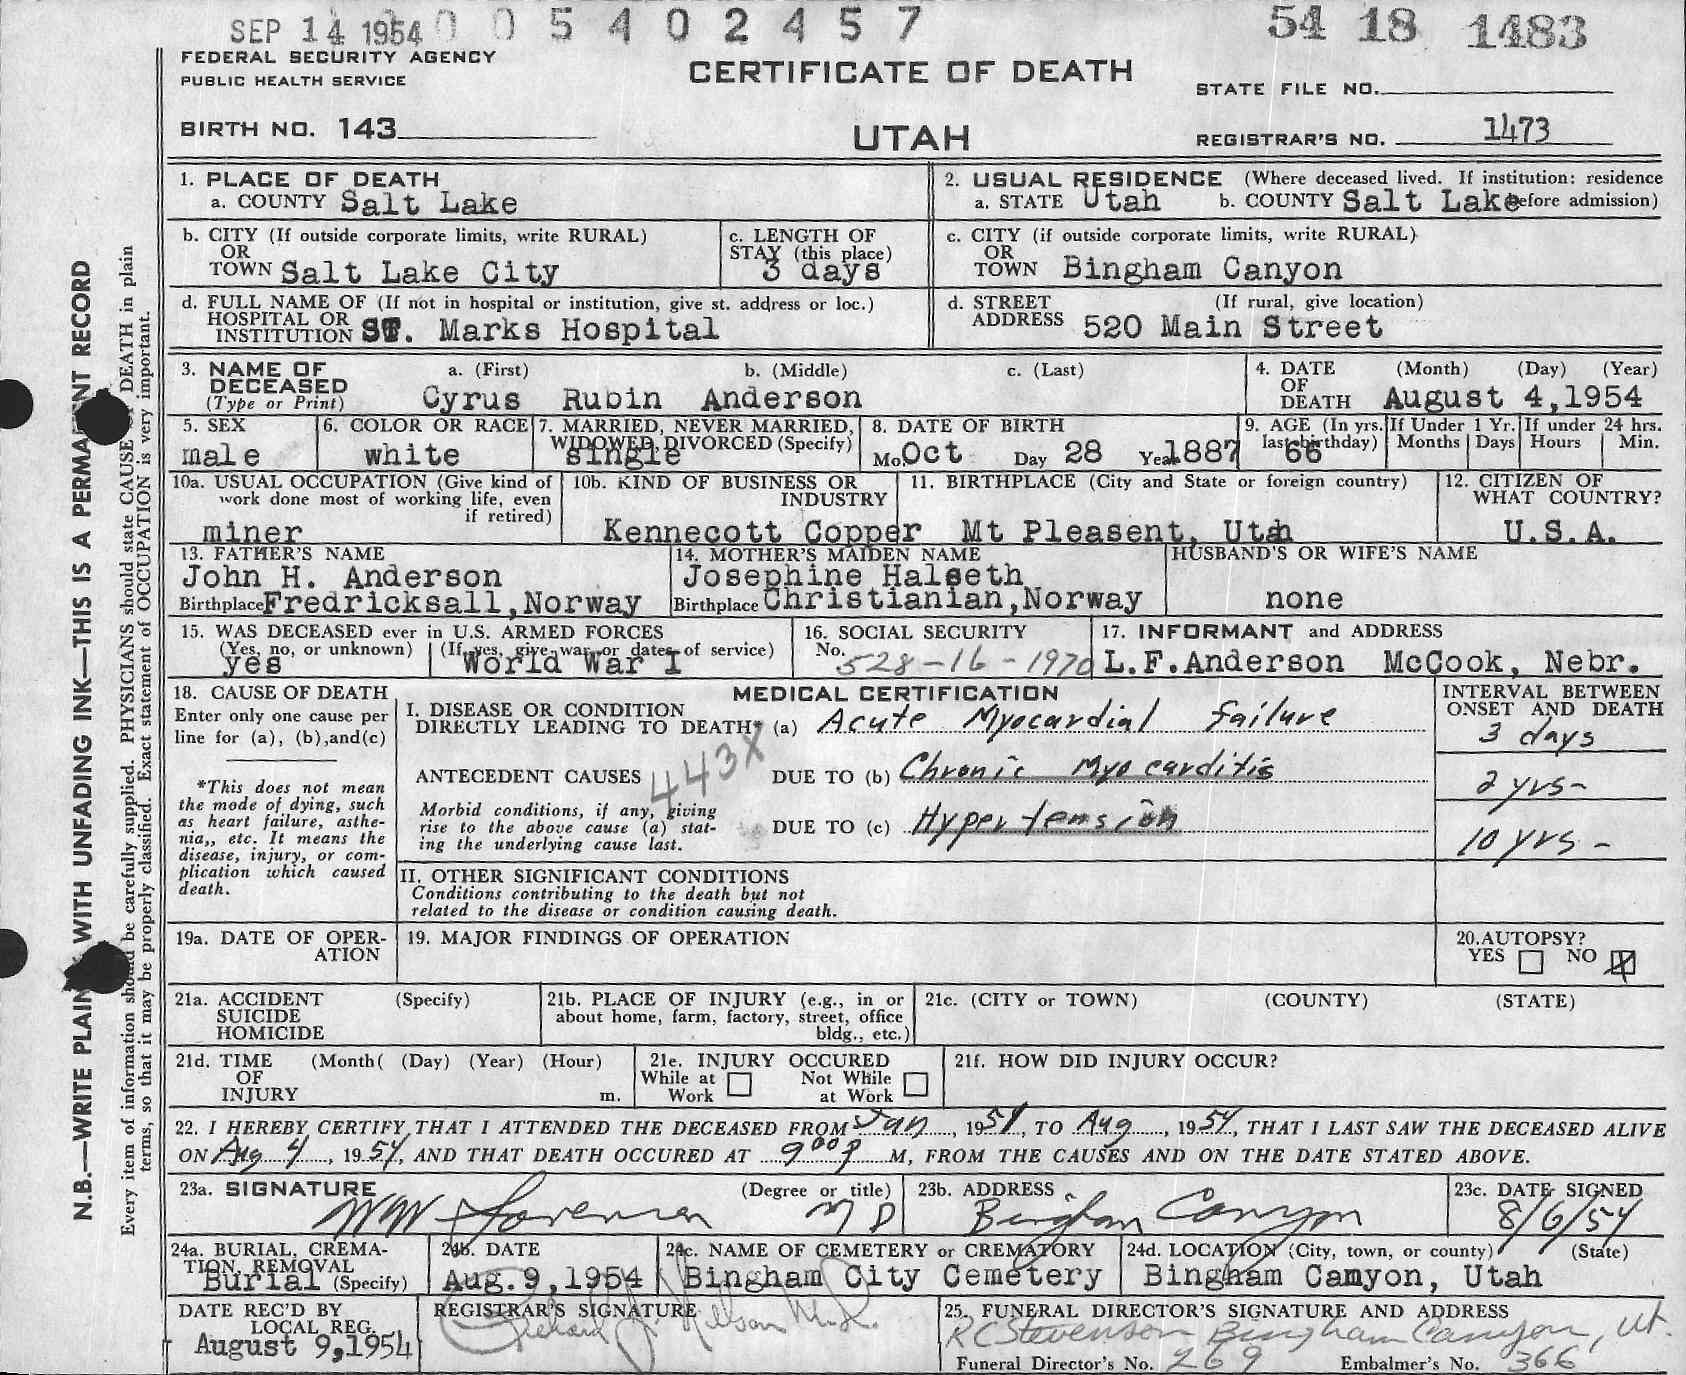 SEP 14 1954 0 0 5 4 0 2 4 5 7 54 18 1483
FEDERAL SECURITY AGENCY
PUBLIC HEALTH SERVICE
CERTIFICATE OF DEATH
STATE FILE NO.
BIRTH NO. 143
UTAH
REGISTRAR'S NO. 1473
N.B.—WRITE PLAINLY WITH UNFADING INK—THIS IS A PERMANENT RECORD
Every item of information should be carefully supplied. PHYSICIANS should state CAUSE OF DEATH in plain
terms, so that it may be properly classified. Exact statement of OCCUPATION is very important.
1. PLACE OF DEATH
a. COUNTY Salt Lake
2. USUAL RESIDENCE (Where deceased lived. If institution: residence
a. STATE Utah b. COUNTY Salt Lake before admission)
b. CITY (If outside corporate limits, write RURAL)
OR
TOWN Salt Lake City
c. LENGTH OF
STAY (this place)
3 days
c. CITY (if outside corporate limits, write RURAL)
OR
TOWN Bingham Canyon
d. FULL NAME OF (If not in hospital or institution, give st. address or loc.)
HOSPITAL OR
INSTITUTION ST. Marks Hospital
d. STREET (If rural, give location)
ADDRESS 520 Main Street
3. NAME OF a. (First) b. (Middle) c. (Last)
DECEASED
(Type or Print) Cyrus Rubin Anderson
4. DATE (Month) (Day) (Year)
OF
DEATH August 4,1954
5. SEX
male
6. COLOR OR RACE
white
7. MARRIED, NEVER MARRIED,
WIDOWED, DIVORCED (Specify)
single
8. DATE OF BIRTH
Mo. Oct Day 28 Year 1887
9. AGE (In yrs.
last birthday)
66
If Under 1 Yr.
Months Days
If under 24 hrs.
Hours Min.
10a. USUAL OCCUPATION (Give kind of
work done most of working life, even
if retired)
miner
10b. KIND OF BUSINESS OR
INDUSTRY
Kennecott Copper
11. BIRTHPLACE (City and State or foreign country)
Mt Pleasent, Utah
12. CITIZEN OF
WHAT COUNTRY?
U.S.A.
13. FATHER'S NAME
John H. Anderson
Birthplace Fredricksall,Norway
14. MOTHER'S MAIDEN NAME
Josephine Halseth
Birthplace Christianian,Norway
HUSBAND'S OR WIFE'S NAME
none
15. WAS DECEASED ever in U.S. ARMED FORCES
(Yes, no, or unknown) (If yes, give war or dates of service)
yes World War I
16. SOCIAL SECURITY
No. 528-16-1970
17. INFORMANT and ADDRESS
L.F.Anderson McCook, Nebr.
18. CAUSE OF DEATH
Enter only one cause per
line for (a), (b),and(c)
*This does not mean
the mode of dying, such
as heart failure, asthe-
nia,, etc. It means the
disease, injury, or com-
plication which caused
death.
MEDICAL CERTIFICATION
I. DISEASE OR CONDITION
DIRECTLY LEADING TO DEATH* (a) Acute Myocardial failure
ANTECEDENT CAUSES 443X DUE TO (b) Chronic Myocarditis
Morbid conditions, if any, giving
rise to the above cause (a) stat-
ing the underlying cause last.
DUE TO (c) Hypertension
INTERVAL BETWEEN
ONSET AND DEATH
3 days
2 yrs-
10 yrs-
II. OTHER SIGNIFICANT CONDITIONS
Conditions contributing to the death but not
related to the disease or condition causing death.
19a. DATE OF OPER-
ATION
19. MAJOR FINDINGS OF OPERATION
20.AUTOPSY?
YES NO X
21a. ACCIDENT (Specify)
SUICIDE
HOMICIDE
21b. PLACE OF INJURY (e.g., in or
about home, farm, factory, street, office
bldg., etc.)
21c. (CITY or TOWN) (COUNTY) (STATE)
21d. TIME (Month( (Day) (Year) (Hour)
OF
INJURY m.
21e. INJURY OCCURED
While at Not While
Work at Work
21f. HOW DID INJURY OCCUR?
22. I HEREBY CERTIFY THAT I ATTENDED THE DECEASED FROM Jan, 1951, TO Aug, 1954, THAT I LAST SAW THE DECEASED ALIVE
ON Aug 4, 1954, AND THAT DEATH OCCURED AT 9 00 P M, FROM THE CAUSES AND ON THE DATE STATED ABOVE.
23a. SIGNATURE (Degree or title)
M D
23b. ADDRESS
Bingham Canyon
23c. DATE SIGNED
8/6/54
24a. BURIAL, CREMA-
TION, REMOVAL
Burial (Specify)
24b. DATE
Aug.9,1954
24c. NAME OF CEMETERY or CREMATORY
Bingham City Cemetery
24d. LOCATION (City, town, or county) (State)
Bingham Canyon, Utah
DATE REC'D BY
LOCAL REG.
August 9,1954
REGISTRAR'S SIGNATURE
Richard J. Nelson M.D.
25. FUNERAL DIRECTOR'S SIGNATURE AND ADDRESS
R C Stevenson Bingham Canyon, Ut.
Funeral Director's No. 269 Embalmer's No. 366